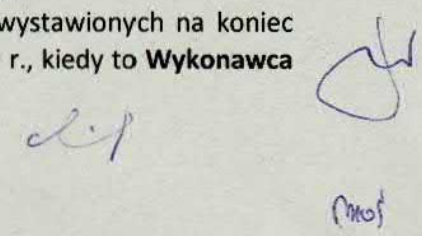 wystawionych na koniec
r., kiedy to Wykonawca